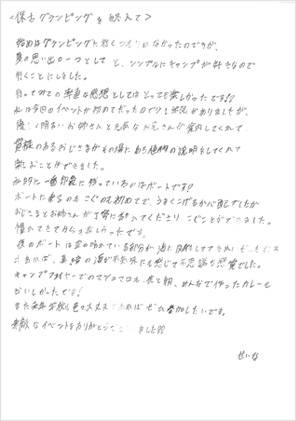 <保古グランピングを終えて>
始めはグランピングに行くつもりはなかったのですが、
夏の思い出の一つとして と、シンプルにキャンプが好きなので
行くことにしました。
行ってみての率直な感想としてはとっても楽しかったです!!
私は今回のイベントが初めてだったので少し不安がありましたが、
優しく明るいお姉さんと元気なお兄さんが案内してくれて
貫禄のあるおじさまがその場にある植物の説明をしてくれて
楽しむことができました。
私的に一番印象に残っているのはボートです!!
ボートに乗るのもこぐのも初めてで、うまくこげるか心配でしたが
おじさまとお姉さんが丁寧に教えてくださり こぐことができました。
慣れてきてからは楽しかったです。
夜のボートは
あれば、真夏の湖が不気味でも感じて不思議な感覚でした。
キャンプファイヤーでのマシュマロも、夜と朝、みんなで作ったカレーも
おいしかったです!
また来年も大丈夫であればぜひ参加したいです。
素敵なイベントをありがとうございました!!
せいな